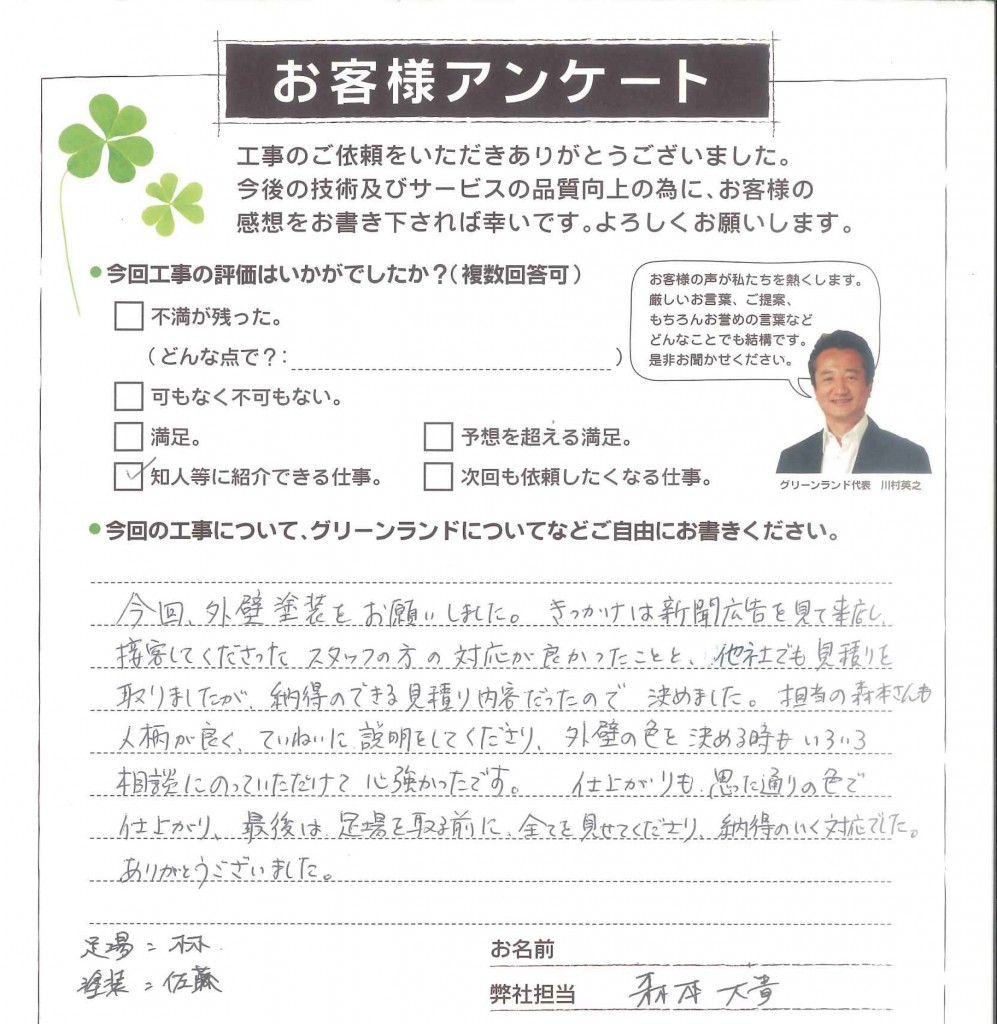 お客様アンケート
工事のご依頼をいただきありがとうございました。
今後の技術及びサービスの品質向上の為に、お客様の
感想をお書き下されば幸いです。よろしくお願いします。
●今回工事の評価はいかがでしたか？（複数回答可）
不満が残った。
（どんな点で？：　　　　）
可もなく不可もない。
満足。
予想を超える満足。
知人等に紹介できる仕事。
次回も依頼したくなる仕事。
お客様の声が私たちを熱くします。
厳しいお言葉、ご提案、
もちろんお誉めの言葉など
どんなことでも結構です。
是非お聞かせください。
グリーンランド代表　川村英之
●今回の工事について、グリーンランドについてなどご自由にお書きください。
今回、外壁塗装をお願いしました。きっかけは新聞広告を見て来店し、
接客してくださったスタッフの方の対応が良かったことと、他社でも見積りを
取りましたが、納得のできる見積り内容だったので決めました。担当の森本さんも
人柄が良く、ていねいに説明をしてくださり、外壁の色を決める時もいろいろ
相談にのっていただけて心強かったです。　仕上がりも思った通りの色で
仕上がり、最後は足場を取る前に、全てを見せてくださり、納得のいく対応でした。
ありがとうございました。
足場：林
塗装：佐藤
お名前
弊社担当　森本大貴